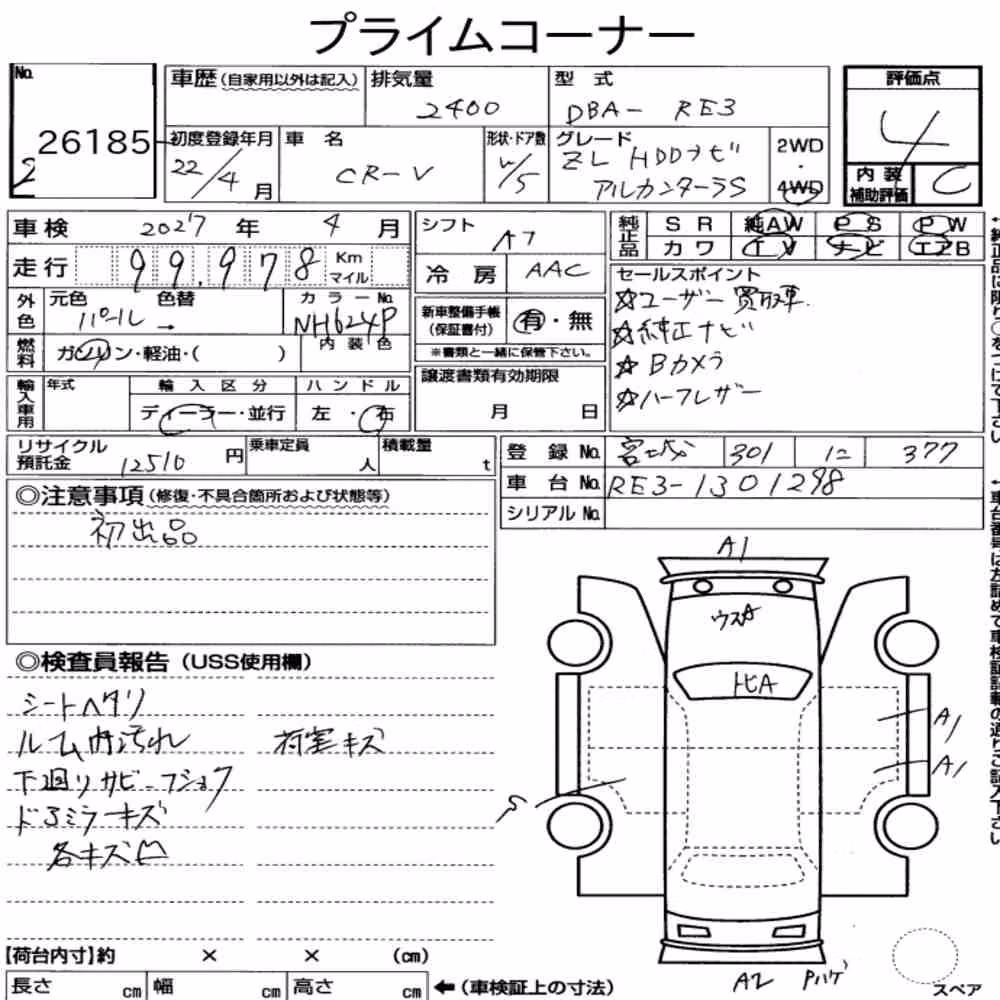 プライムコーナー
No.
26185
2
車歴(自家用以外は記入)
排気量
2400
型式
DBA- RE3
初度登録年月
22/4月
車名
CR-V
形状・ドア数
W/5
グレード
ZL HDDナビ
アルカンターラS
2WD
・
4WD
評価点
4
内装
補助評価
C
車検 2027年 4月
走行 99,978 Km
マイル
外色
元色 色替
パール →
カラーNo.
NH624P
内装色
燃料
ガソリン・軽油・( )
輸入車用
年式
輸入区分
ディーラー・並行
ハンドル
左・右
シフト
AT
冷房 AAC
新車整備手帳
(保証書付)
有・無
※書類と一緒に保管下さい。
譲渡書類有効期限
月 日
純正品
SR 純AW PS PW
カワ TV ナビ エアB
セールスポイント
☆ユーザー買取車.
☆純正ナビ
☆Bカメラ
☆ハーフレザー
リサイクル
預託金 12510円
乗車定員
人
積載量
t
登録No. 宮城 301 に 377
車台No. RE3-1301298
シリアルNo.
◎注意事項(修復・不具合箇所および状態等)
初出品
◎検査員報告(USS使用欄)
シートヘタリ
ルーム内汚れ 荷室キズ
下廻りサビーフショク
ドアミラーキズ
各キズ凹
A1
ウスA
トビA
A1
A1
S
A2 Pハゲ
スペア
【荷台内寸】約 × × (cm)
長さ cm 幅 cm 高さ cm ←(車検証上の寸法)
↑純正品に限り○をつけて下さい
↑車台番号は左詰めで車検証記載の通りご記入下さい